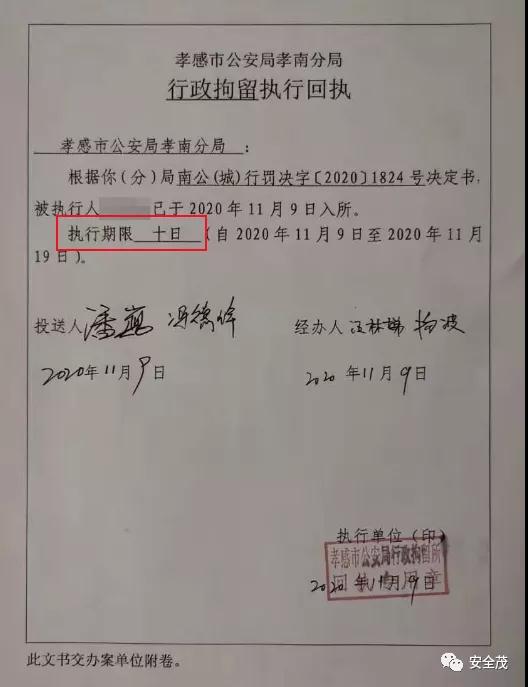 孝感市公安局孝南分局
行政拘留执行回执
孝感市公安局孝南分局：
根据你（分）局南公(城)行罚决字〔2020〕1824号决定书，
被执行人 已于2020年11月9日入所。
执行期限 十日 （自2020年11月9日至2020年11月
19日）。
投送人 潘 冯 经办人 汪林 杨波
2020年11月9日 2020年11月9日
执行单位（印）
孝感市公安局行政拘留所
2020年11月9日
回执专用章
此文书交办案单位附卷。
安全茂